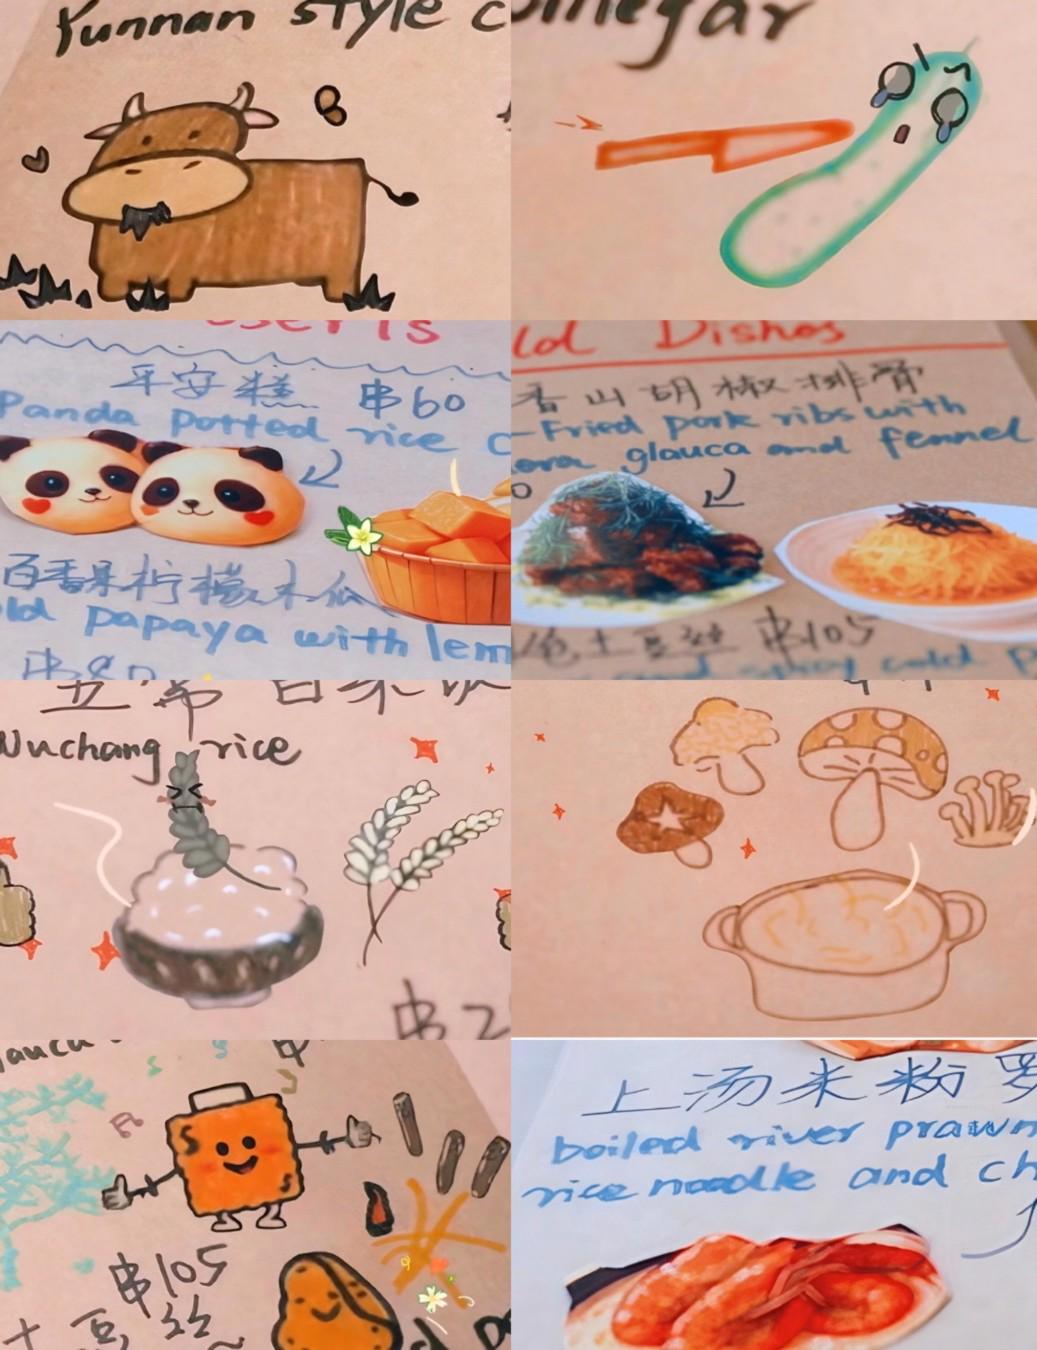 Yunnan style c
inegar
serts
平安糕 ฿60
Panda potted rice c
百香果柠檬木瓜
ld papaya with lem
฿80
ld Dishes
香山胡椒排骨
-Fried pork ribs with
ora glauca and fennel
0
色土豆丝 ฿105
and spicy cold p
五常白米饭
Wuchang rice
฿2
glauca
฿105
土豆丝
上汤米粉罗
boiled river prawn
rice noodle and ch